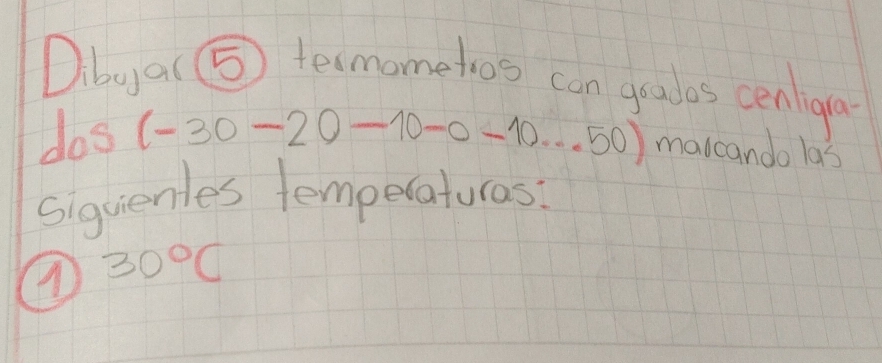 Dibujar 5 termometros con grados centigra-
dos (-30 -20 -10 -0 -10...50) marcando las
siguientes temperaturas:
1 30°C